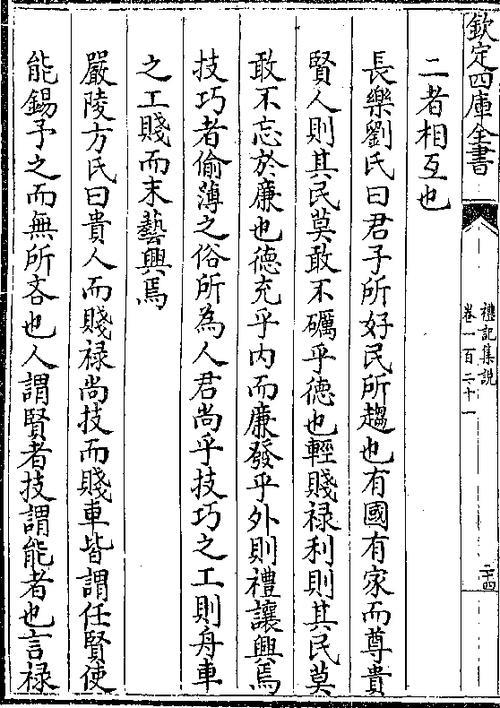 欽定四庫全書
禮記集說
卷一百二十一
二十四
二者相互也
長樂劉氏曰君子所好民所趨也有國有家而尊貴
賢人則其民莫敢不礪乎德也輕賤祿利則其民莫
敢不忘於廉也德充乎内而廉發乎外則禮讓興焉
技巧者偷薄之俗所為人君尚乎技巧之工則舟車
之工賤而末藝興焉
嚴陵方氏曰貴人而賤禄尚技而賤車皆謂任賢使
能錫予之而無所吝也人謂賢者技謂能者也言禄